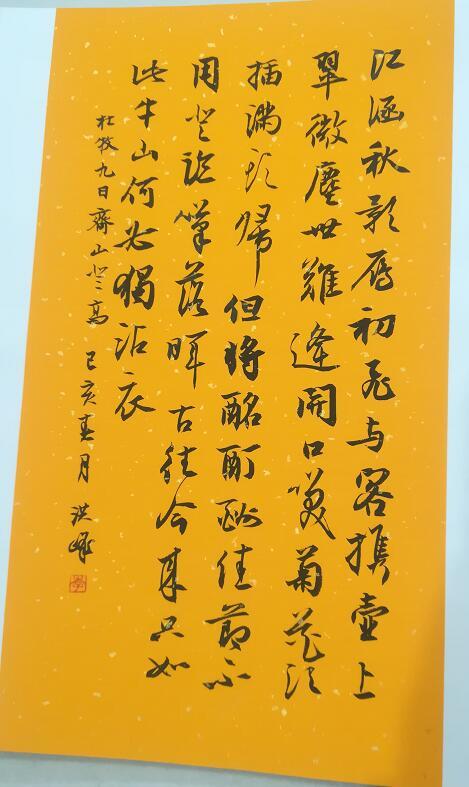 江涵秋影雁初飞与客携壶上
翠微塵世難逢開口笑菊花须
插满头歸但将酩酊酬佳節不
用登临嘆落暉古往今来只如
此牛山何必獨沾衣
杜牧九日齊山登高 己亥春月 洪峰